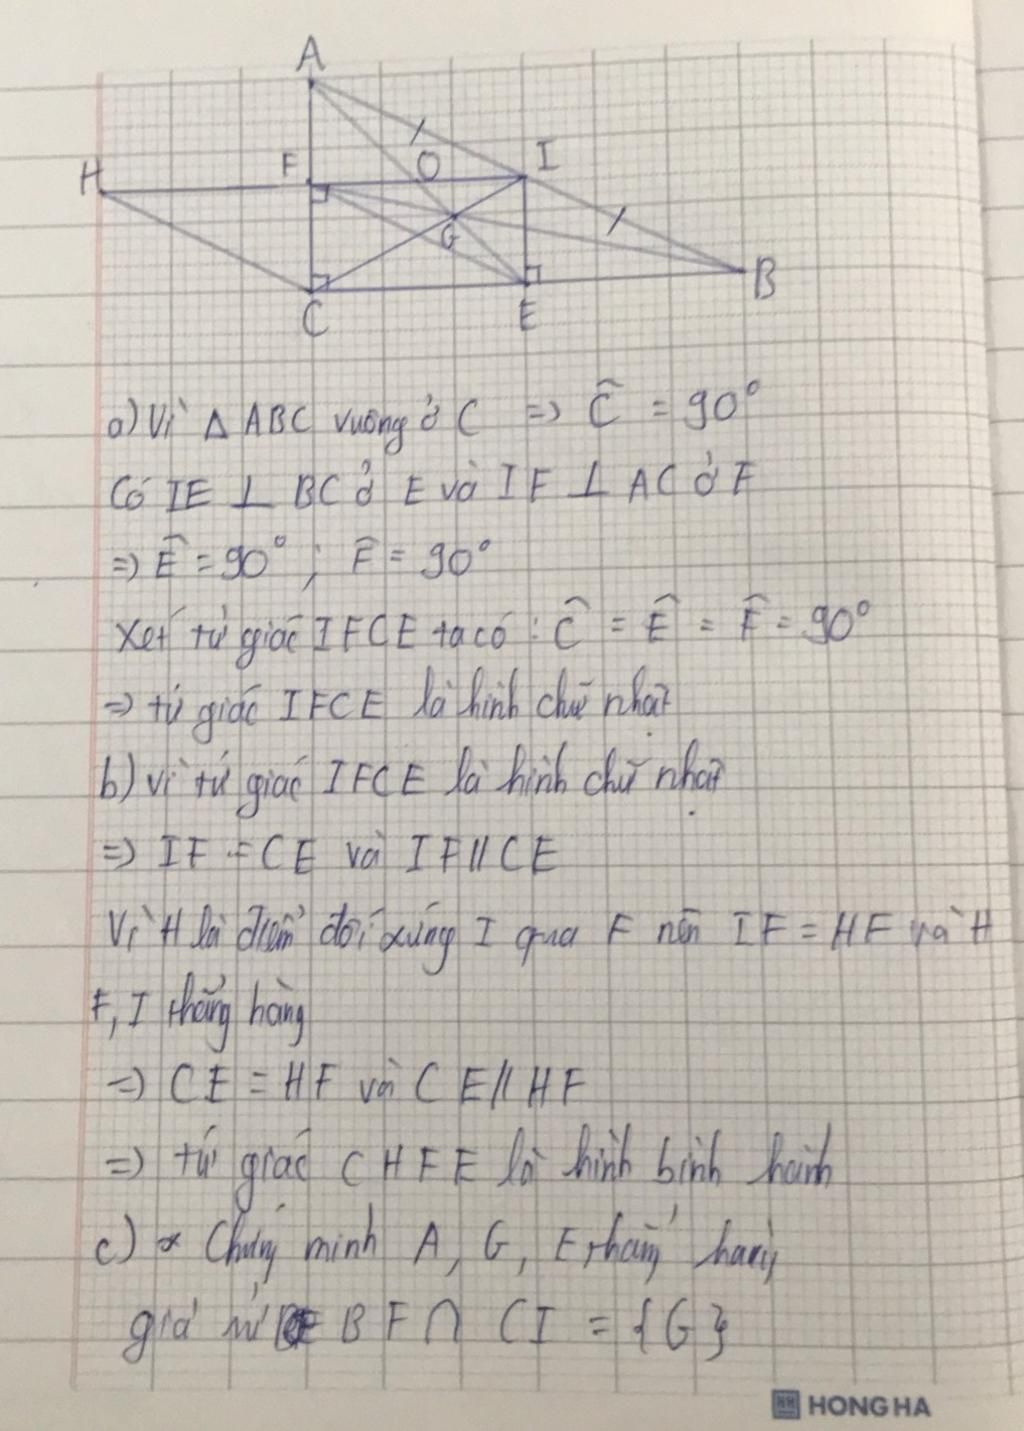 A
H
F
O
I
G
B
C
E
a) Vì Δ ABC vuông ở C => Ĉ = 90°
Có IE ⊥ BC ở E và IF ⊥ AC ở F
=> Ê = 90° ; F̂ = 90°
Xét tứ giác IFCE ta có : Ĉ = Ê = F̂ = 90°
=> tứ giác IFCE là hình chữ nhật
b) Vì tứ giác IFCE là hình chữ nhật
=> IF = CE và IF // CE
Vì H là điểm đối xứng I qua F nên IF = HF và H
F, I thẳng hàng
=> CE = HF và CE // HF
=> tứ giác CHFE là hình bình hành
c) * Chứng minh A, G, E thẳng hàng
giả sử BF ∩ CI = {G}
HONG HA